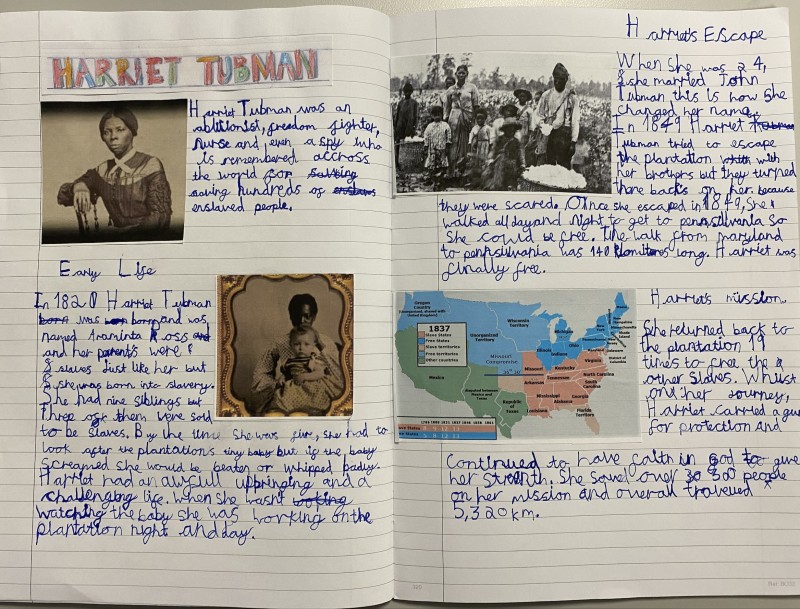 HARRIET TUBMAN
Harriet Tubman was an
abilitionist, freedom fighter,
nurse and, even a spy who
is remembered accross
the world for
saving hundreds of
enslaved people.
Early Life
In 1820 Harriet Tubman
was born and was
named Araminta Ross
and her parents were
slaves just like her but
she was born into slavery.
She had nine siblings but
Three of them were sold
to be slaves. By the time she was five, she had to
look after the plantations tiny baby but if the baby
screamed she would be beaten or whipped badly.
Harriet had an awfull uppringing and a
challenging life. When she wasn't
watching the baby she was working on the
plantation night and day.
Harriet's Escape
When she was 24,
she married John
Tubman this is how she
changed her name.
In 1849 Harriet
Tubman tried to escape
the plantation with
her brothers but they turned
there backs on her because
they were scared. Once she escaped in 1849, she
walked all day and night to get to pennsilvania so
she could be free. The walk from maryland
to pennsilvania was 140 long. Harriet was
finally free.
Oregon Country
Wisconsin Territory
Unorganized Territory
1837
Slave States
Free States
Slave territories
Free territories
Other countries
Missouri Compromise
Mexico
Republic of Texas
Illinois
Indiana
Ohio
Missouri
Kentucky
Virginia
North Carolina
Tennessee
Arkansas
South Carolina
Mississippi
Alabama
Georgia
Louisiana
Florida Territory
Harriet's mission
She returned back to
the plantation 19
times to free the
other slaves. Whilst
on her journey,
Harriet carried a gun
for protection and
Continued to have faith in god to give
her strenth. She saved over 300 people
on her mission and overall travelled
5,320km.